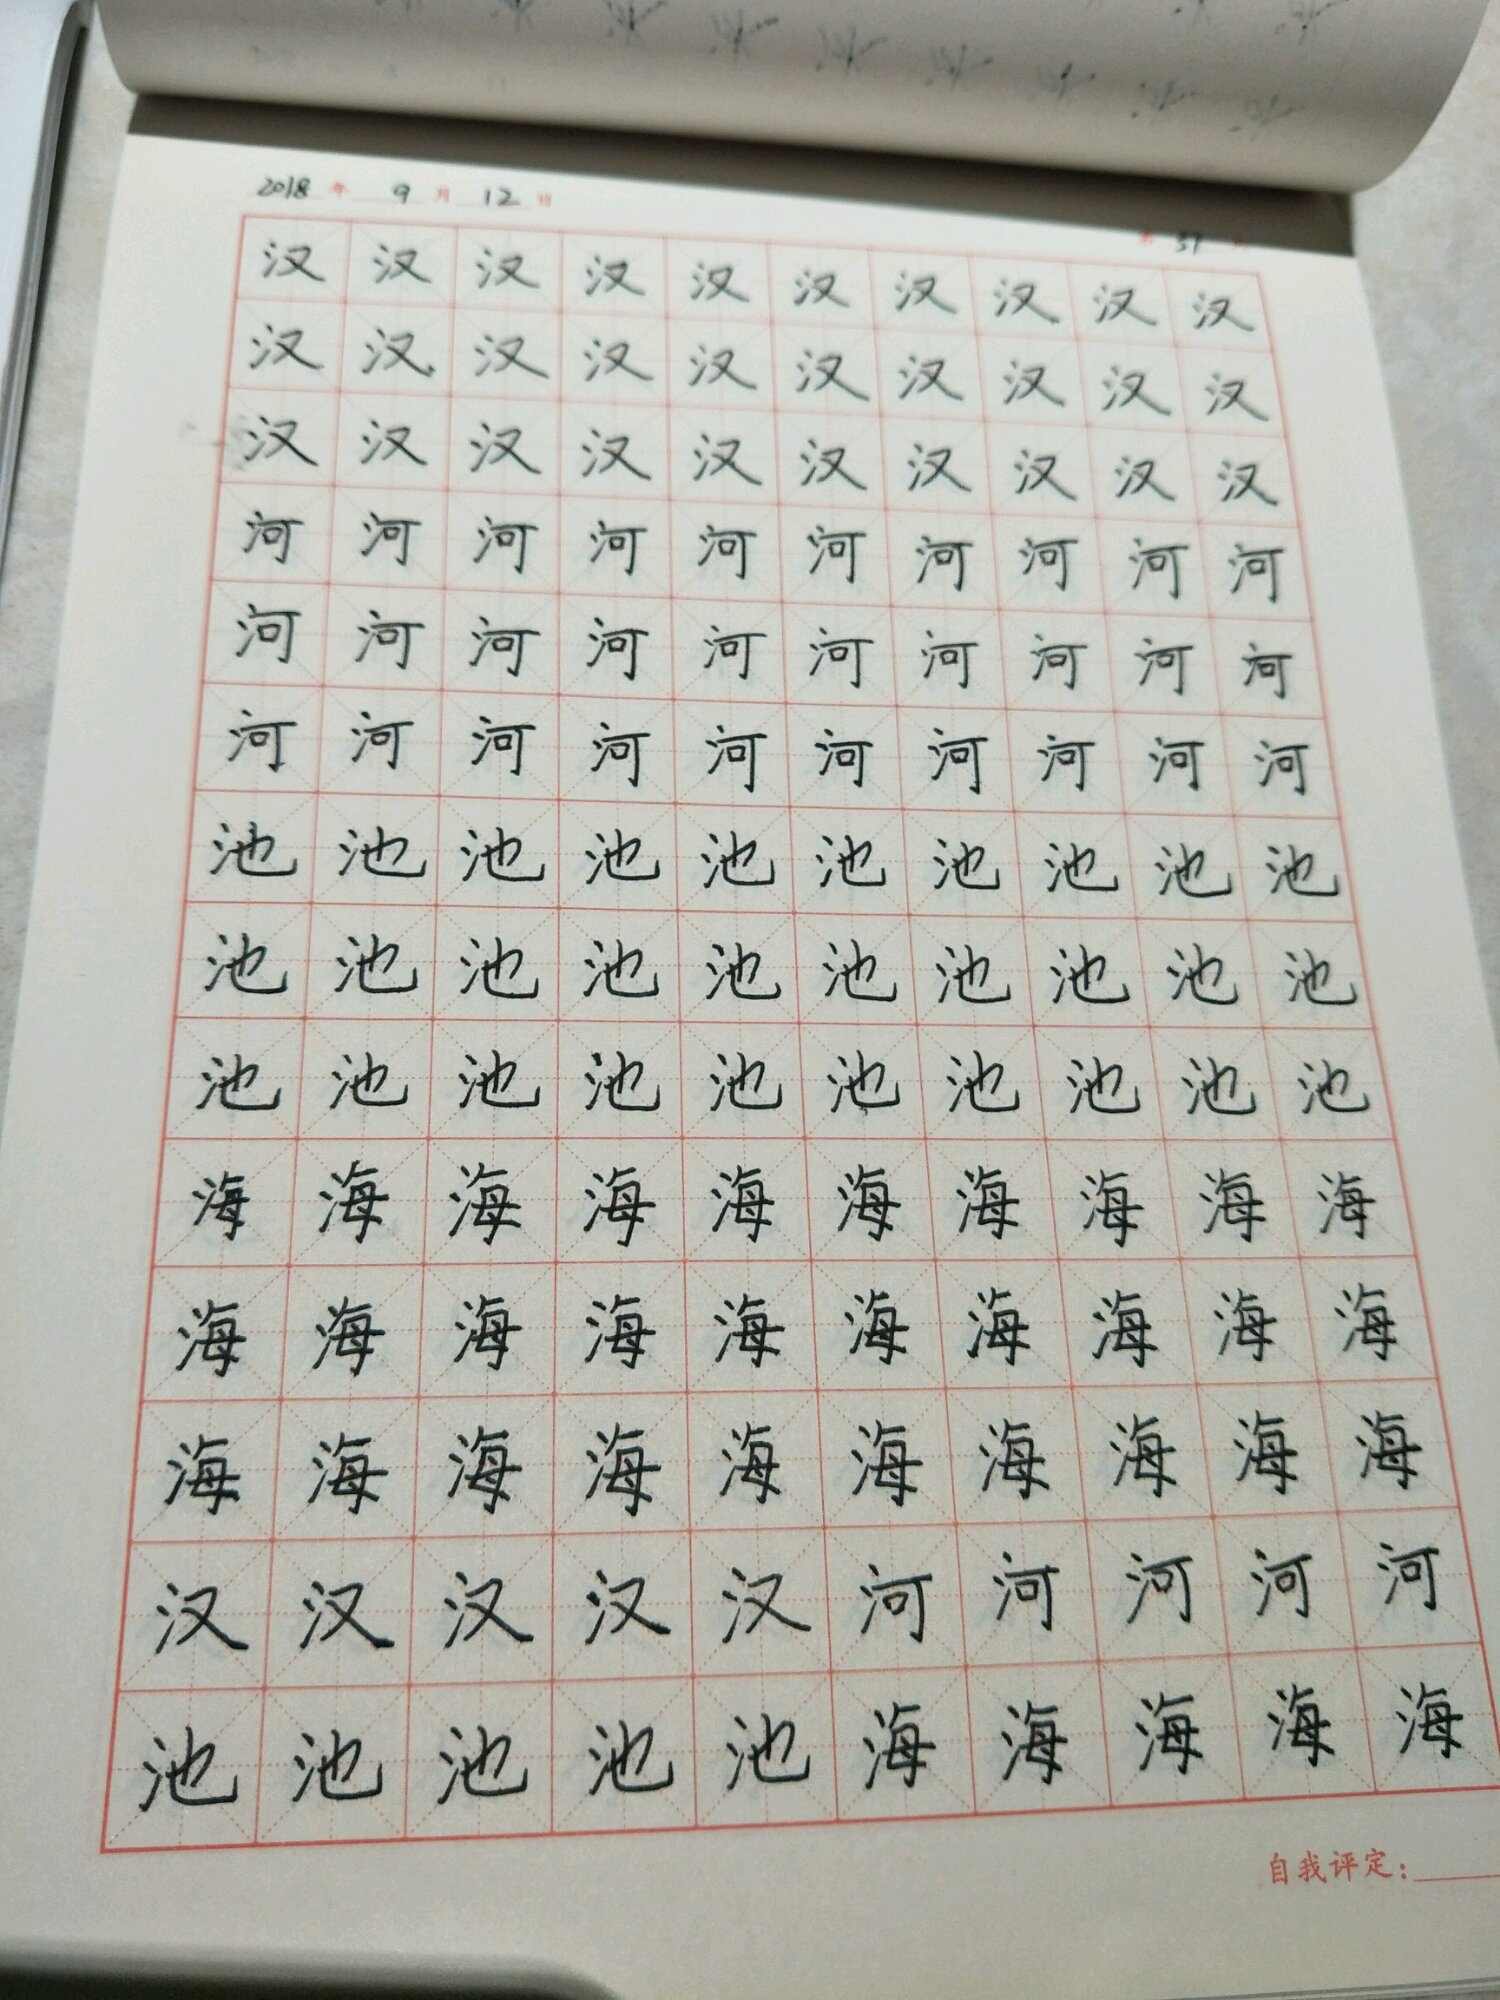 2018 年 9 月 12 日
第 51
汉 汉 汉 汉 汉 汉 汉 汉 汉 汉
汉 汉 汉 汉 汉 汉 汉 汉 汉 汉
汉 汉 汉 汉 汉 汉 汉 汉 汉 汉
河 河 河 河 河 河 河 河 河 河
河 河 河 河 河 河 河 河 河 河
河 河 河 河 河 河 河 河 河 河
池 池 池 池 池 池 池 池 池 池
池 池 池 池 池 池 池 池 池 池
池 池 池 池 池 池 池 池 池 池
海 海 海 海 海 海 海 海 海 海
海 海 海 海 海 海 海 海 海 海
海 海 海 海 海 海 海 海 海 海
汉 汉 汉 汉 汉 河 河 河 河 河
池 池 池 池 池 海 海 海 海 海
自我评定：